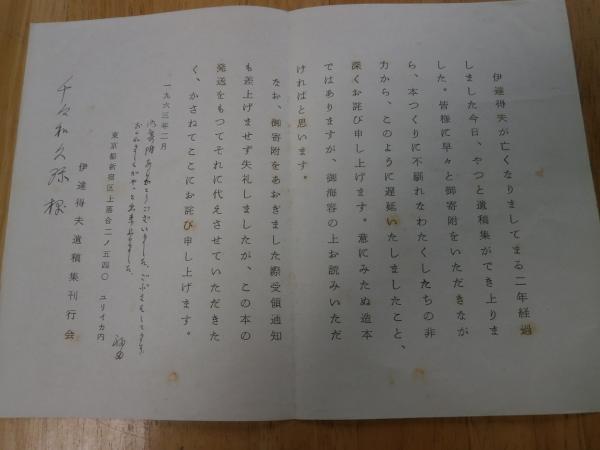 伊達得夫が亡くなりましてまる二年経過
しました今日、やつと遺稿集ができ上りま
した。皆様に早々と御寄附をいただきなが
ら、本つくりに不馴れなわたくしたちの非
力から、このように遅延いたしましたこと、
深くお詫び申し上げます。意にみたぬ造本
ではありますが、御海容の上お読みいただ
ければと思います。
なお、御寄附をあおぎました際受領通知
も差上げませず失礼しましたが、この本の
発送をもつてそれに代えさせていただきた
く、かさねてここにお詫び申し上げます。
一九六三年二月
御寄附ありがとうございました。
東京都新宿区上落合二ノ五四〇 ユリイカ内
伊達得夫遺稿集刊行会
様